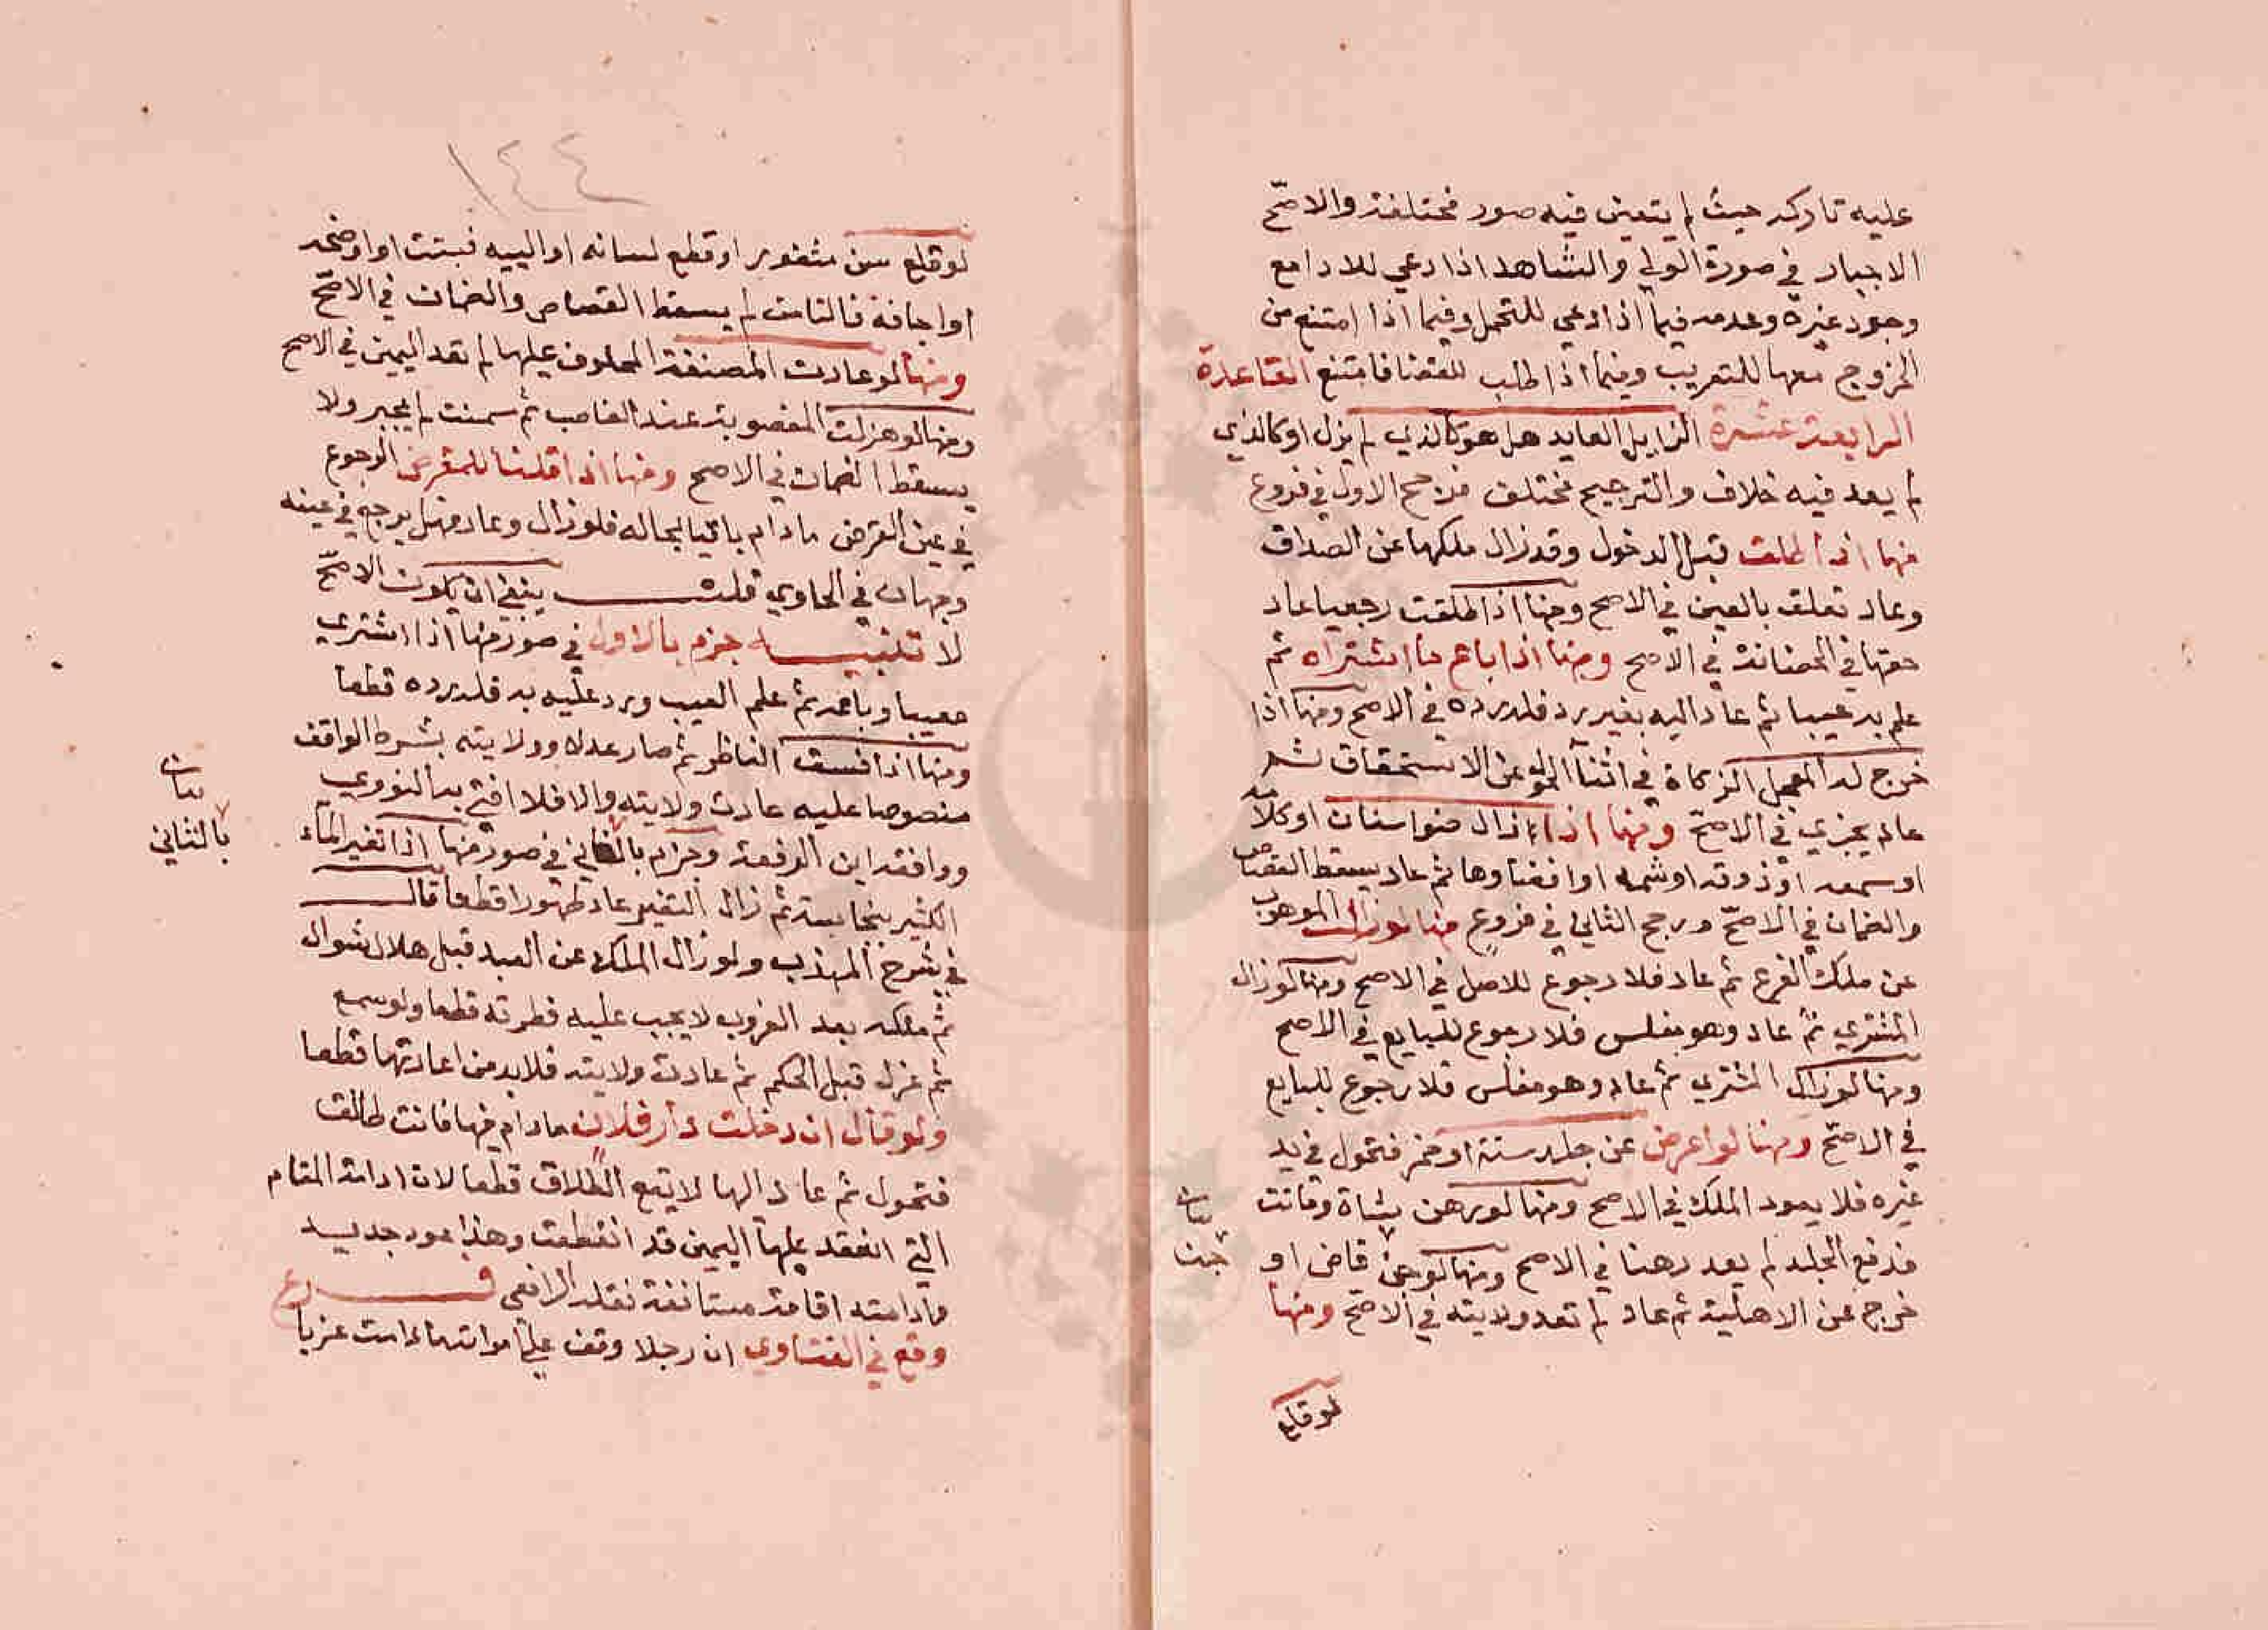 عليه تاركه حيث لم يتعين فيه صور مختلفة والاصح
الاجبار في صورة الولي والشاهد اذا دعي للادا مع
وجود غيره وعدمه فيما اذا دعي للتحمل وفيما اذا امتنع من
الخروج معها للتعريب وفيما اذا طلب للقضا فامتنع القاعدة
الرابعة عشرة الزايل العايد هل هو كالذي لم يزل او كالذي
لم يعد فيه خلاف والترجيح مختلف فلاصح الاول في فروع
منها اذا طلق قبل الدخول وقد زال ملكها عن الصداق
وعاد تعلق بالعين في الاصح ومنها اذا طلقت رجعيا عاد
حقها في الحضانة في الاصح ومنها اذا باع ما اشتراه ثم
علم به عيبا ثم عاد اليه بغير رد فله رده في الاصح ومنها اذا
خرج له المعجل الزكاة في اثنا الحول عن الاستحقاق ثم
عاد يجزي في الاصح ومنها اذا زال ضوا سنان او كلامه
او سمعه او ذوقه او شمه او افضاوها ثم عاد يسقط القصاص
والضمان في الاصح ورجح الثاني في فروع منها لو زال الموهوب
عن ملك الفرع ثم عاد فلا رجوع للاصل في الاصح ومنها لو زال
المشتري ثم عاد وهو مفلس فلا رجوع للبايع في الاصح
ومنها لو زال المشتري ثم عاد وهو مفلس فلا رجوع للبايع
في الاصح ومنها لو اعرض عن جلد ستة او خمر فتحول في يد
غيره فلا يعود الملك في الاصح ومنها لو رهن شاة وماتت
فدفع الجلد لم يعد رهنا في الاصح ومنها لو جن قاض او
خرج عن الاهلية ثم عاد لم تعد ولايته في الاصح ومنها
بيان
جن
لو قلع
١٤٤
لو قلع سن مثغور او قطع لسانه او الييه فنبتت او اوضحه
او اجافه فالتامت لم يسقط القصاص والضمان في الاصح
ومنها لو عادت الصنفة المحلوف عليها لم تعد اليمين في الاصح
ومنها لو هزلت المغصوبة عند الغاصب ثم سمنت لم يجبر ولا
يسقط الضمان في الاصح ومنها اذا قلنا للمقرض الرجوع
في عين القرض ما دام باقيا بحاله فلو زال وعاد فهل يرجع في عينه
وجهان في الحاوي قلت ينبغي ان يكون الاصح
لا تنبيه جزم بالاول في صور منها اذا اشتري
معيبا وباعه ثم علم العيب ورد عليه به فله رده قطعا
ومنها اذا فسق الناظر ثم صار عدلا وولايته بشرط الواقف
منصوصا عليه عادت ولايته والا فلا افتي به النووي
ووافقه ابن الرفعة وجزم بالثاني في صور منها اذا تغير الماء
بيان
بالثاني
الكثير بنجاسة ثم زال التغير عاد طهورا قطعا قال
في شرح المهذب ولو زال الملك عن العبد قبل هلال شوال
ثم ملكه بعد الغروب لا يجب عليه فطرته قطعا ولو سمع
ثم عزل قبل الحكم ثم عادت ولايته فلا بد من اعادتها قطعا
ولو قال ان دخلت دار فلان ما دام فيها فانت طالق
فتحول ثم عاد اليها لا يقع الطلاق قطعا لان ادامة المقام
التي انعقد عليها اليمين قد انقطعت وهذا عود جديد
وادامته اقامة مستانفة نقله الرافعي فرع
وقع في الفتاوي ان رجلا وقف علي امراتها ما دامت عزبا